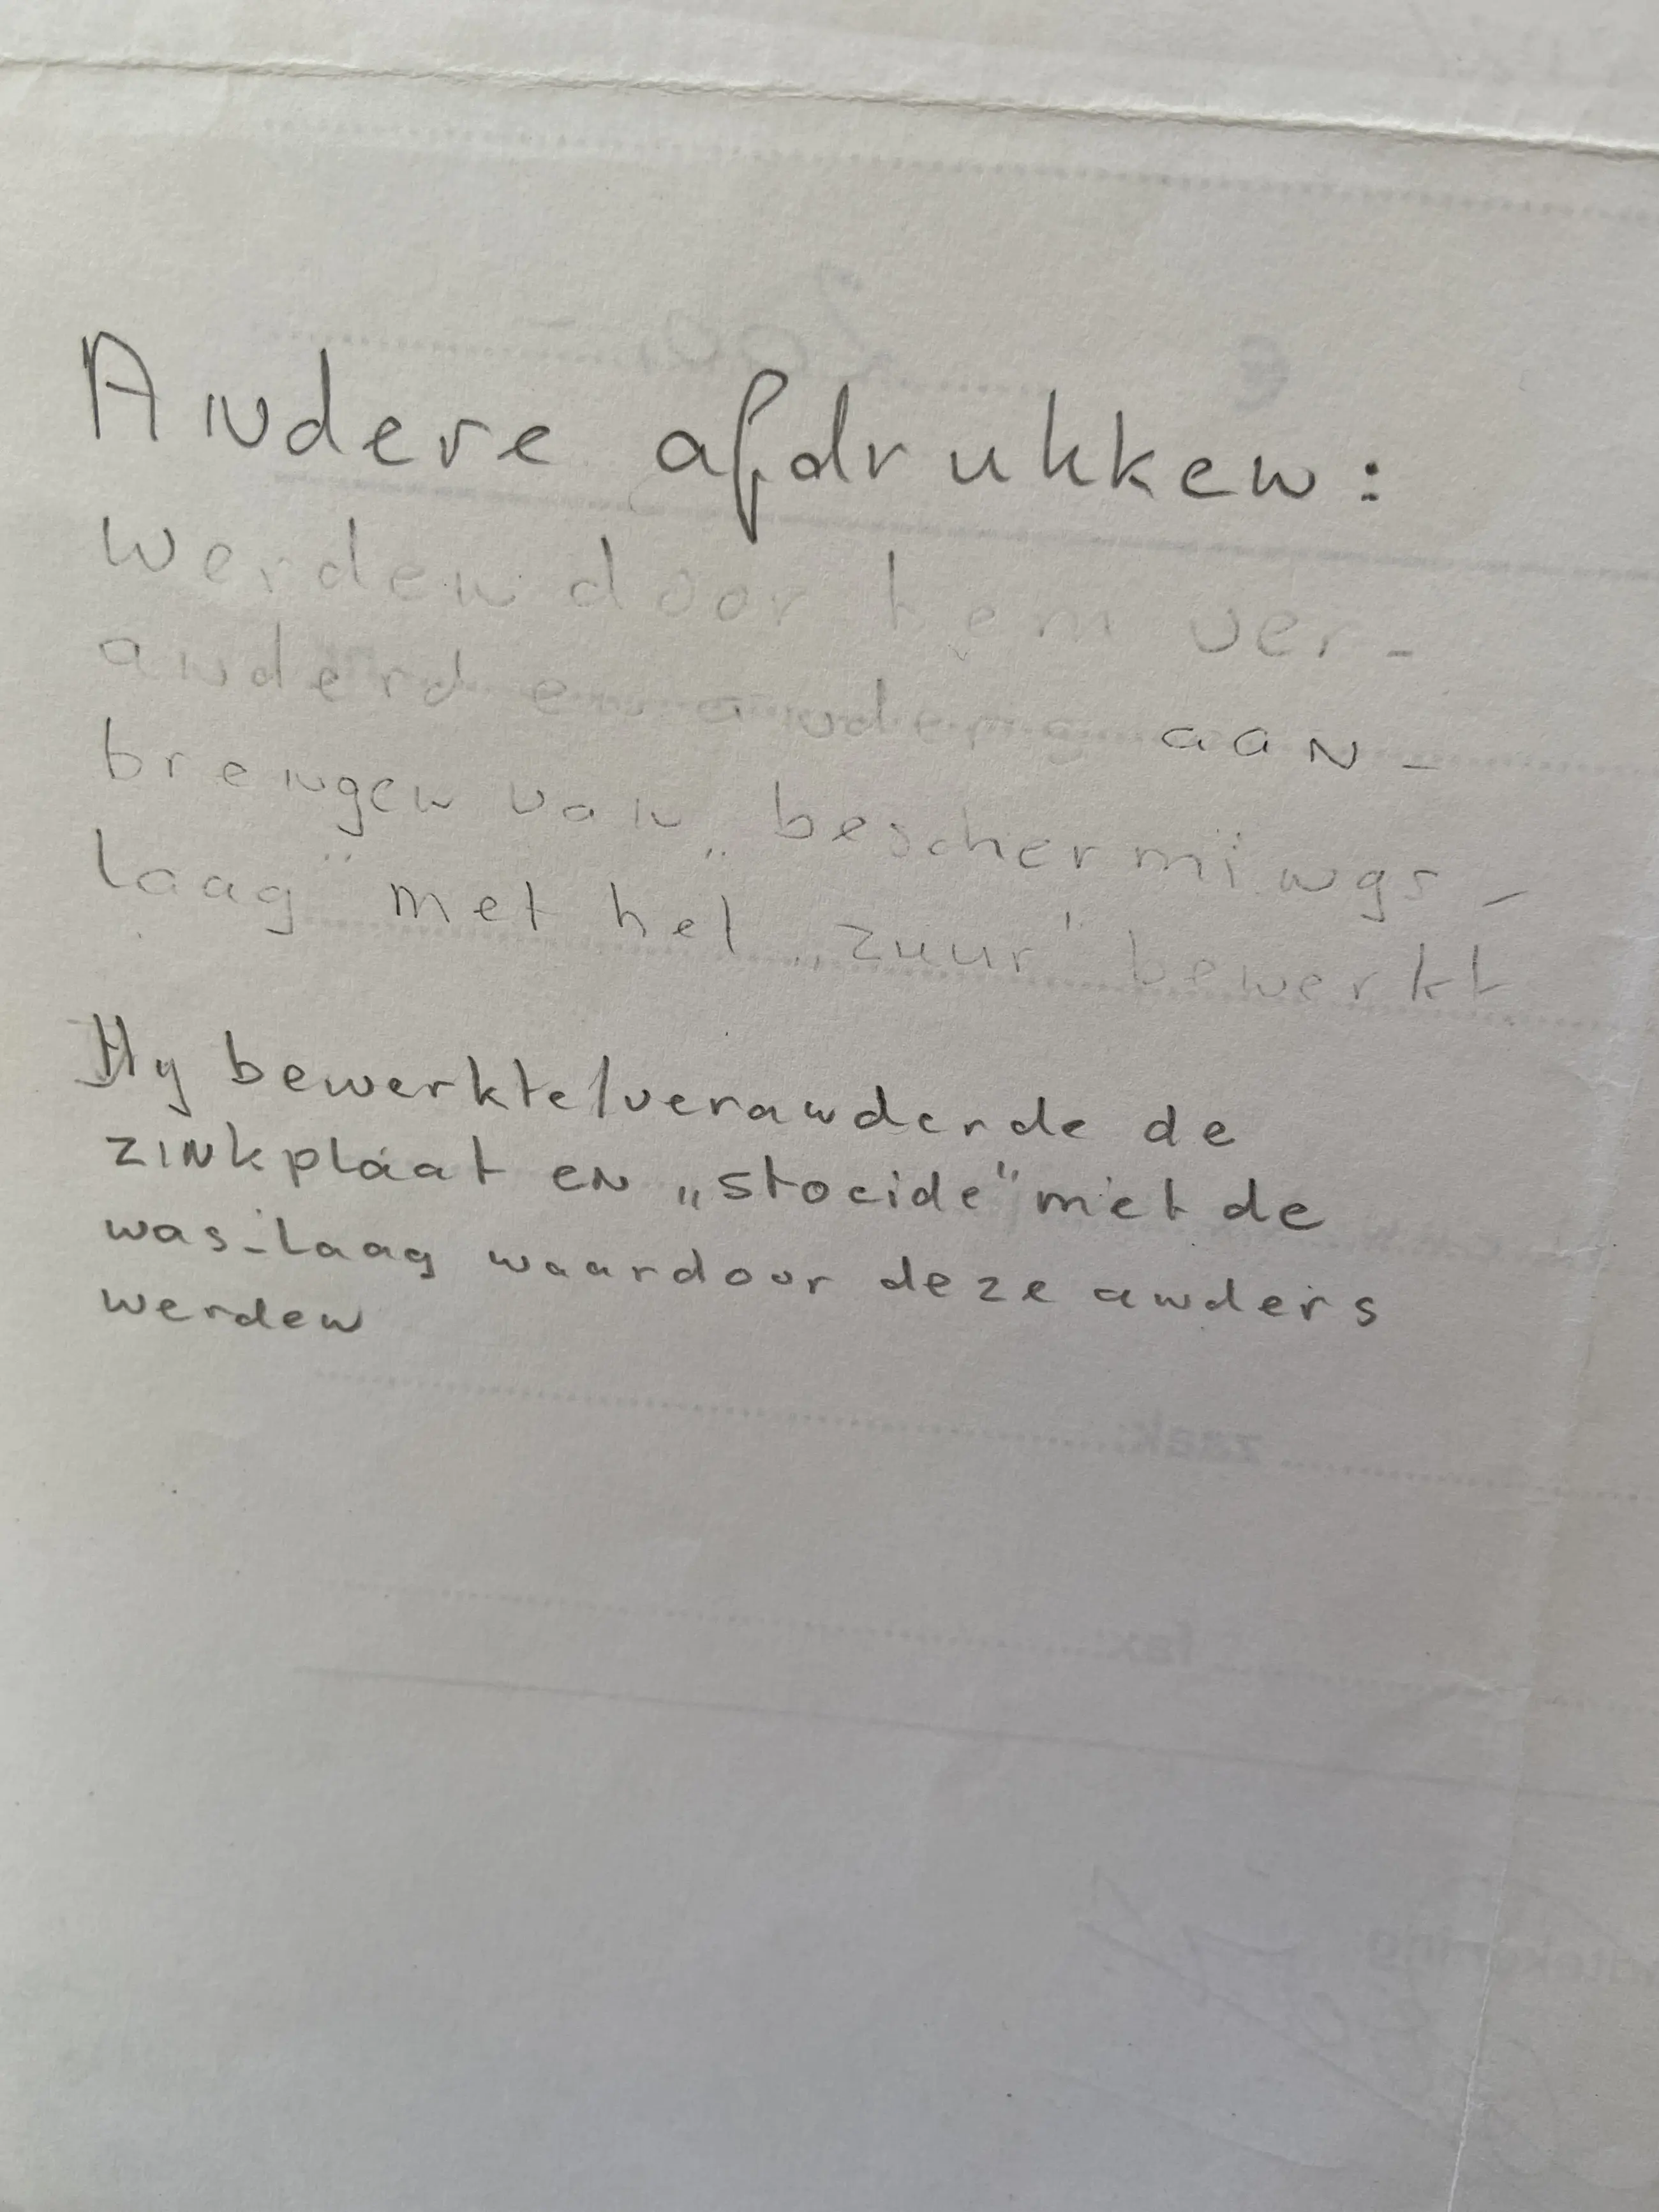 Andere afdrukken:
werden door hem ver-
anderd en anders aan-
brengen van „beschermings-
laag" met het „zuur" bewerkt
Hy bewerkte/veranderde de
zinkplaat en „stoeide" met de
was-laag waardoor deze anders
werden
zaak:
fax: